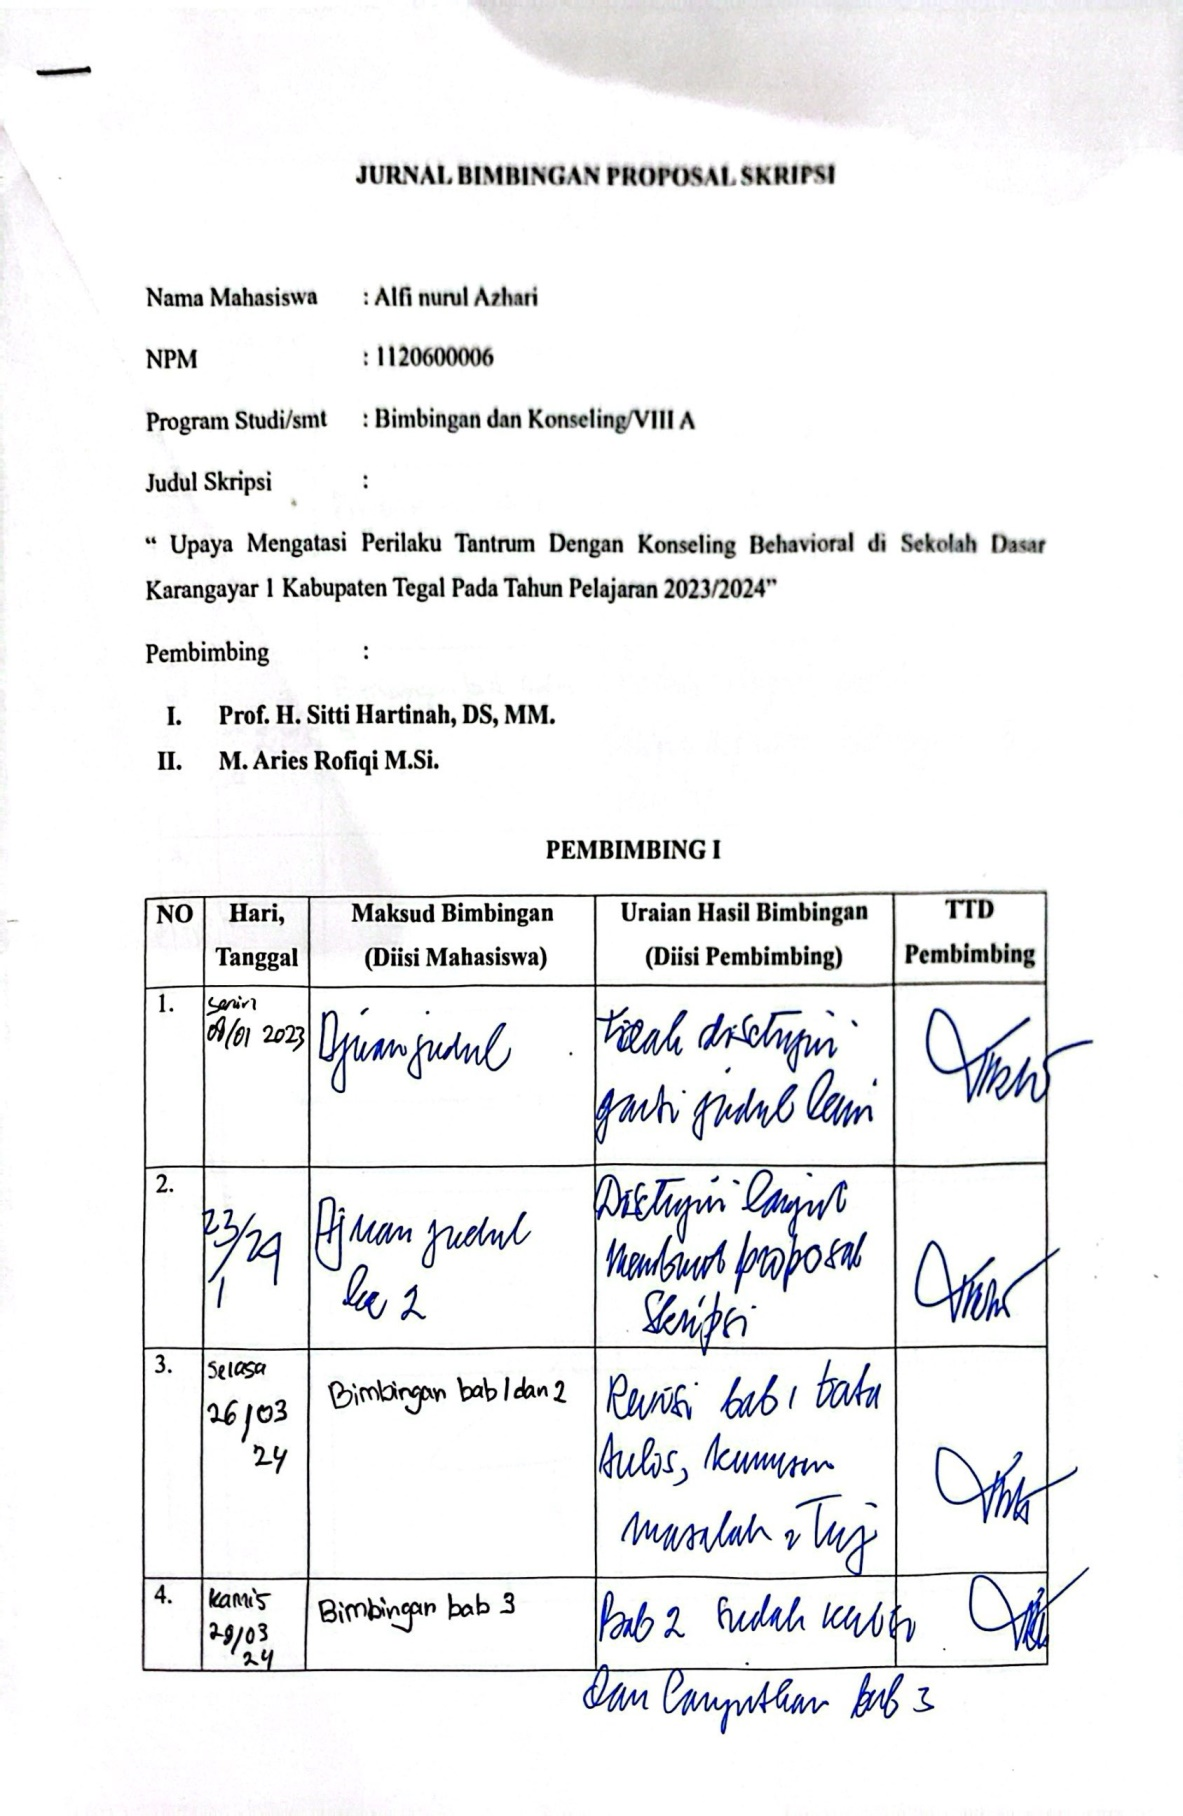 JURNAL BIMBINGAN PROPOSAL SKRIPSI
Nama Mahasiswa : Alfi nurul Azhari
NPM : 1120600006
Program Studi/smt : Bimbingan dan Konseling/VIII A
Judul Skripsi :
“ Upaya Mengatasi Perilaku Tantrum Dengan Konseling Behavioral di Sekolah Dasar
Karangayar 1 Kabupaten Tegal Pada Tahun Pelajaran 2023/2024”
Pembimbing :
I. Prof. H. Sitti Hartinah, DS, MM.
II. M. Aries Rofiqi M.Si.
PEMBIMBING I
NO Hari, Maksud Bimbingan Uraian Hasil Bimbingan TTD
Tanggal (Diisi Mahasiswa) (Diisi Pembimbing) Pembimbing
1. Senin
/01 2023 Ajuan judul tidak disetujui
ganti judul lain
2. 23/24
1
Ajuan judul
ke 2
Disetujui lanjut
membuat proposal
Skripsi
3. Selasa
26/03
24
Bimbingan bab 1 dan 2
Revisi bab 1 tata
tulis,
masalah
4. Kamis
28/03
24
Bimbingan bab 3
Bab 2 sudah
dan lanjutkan bab 3